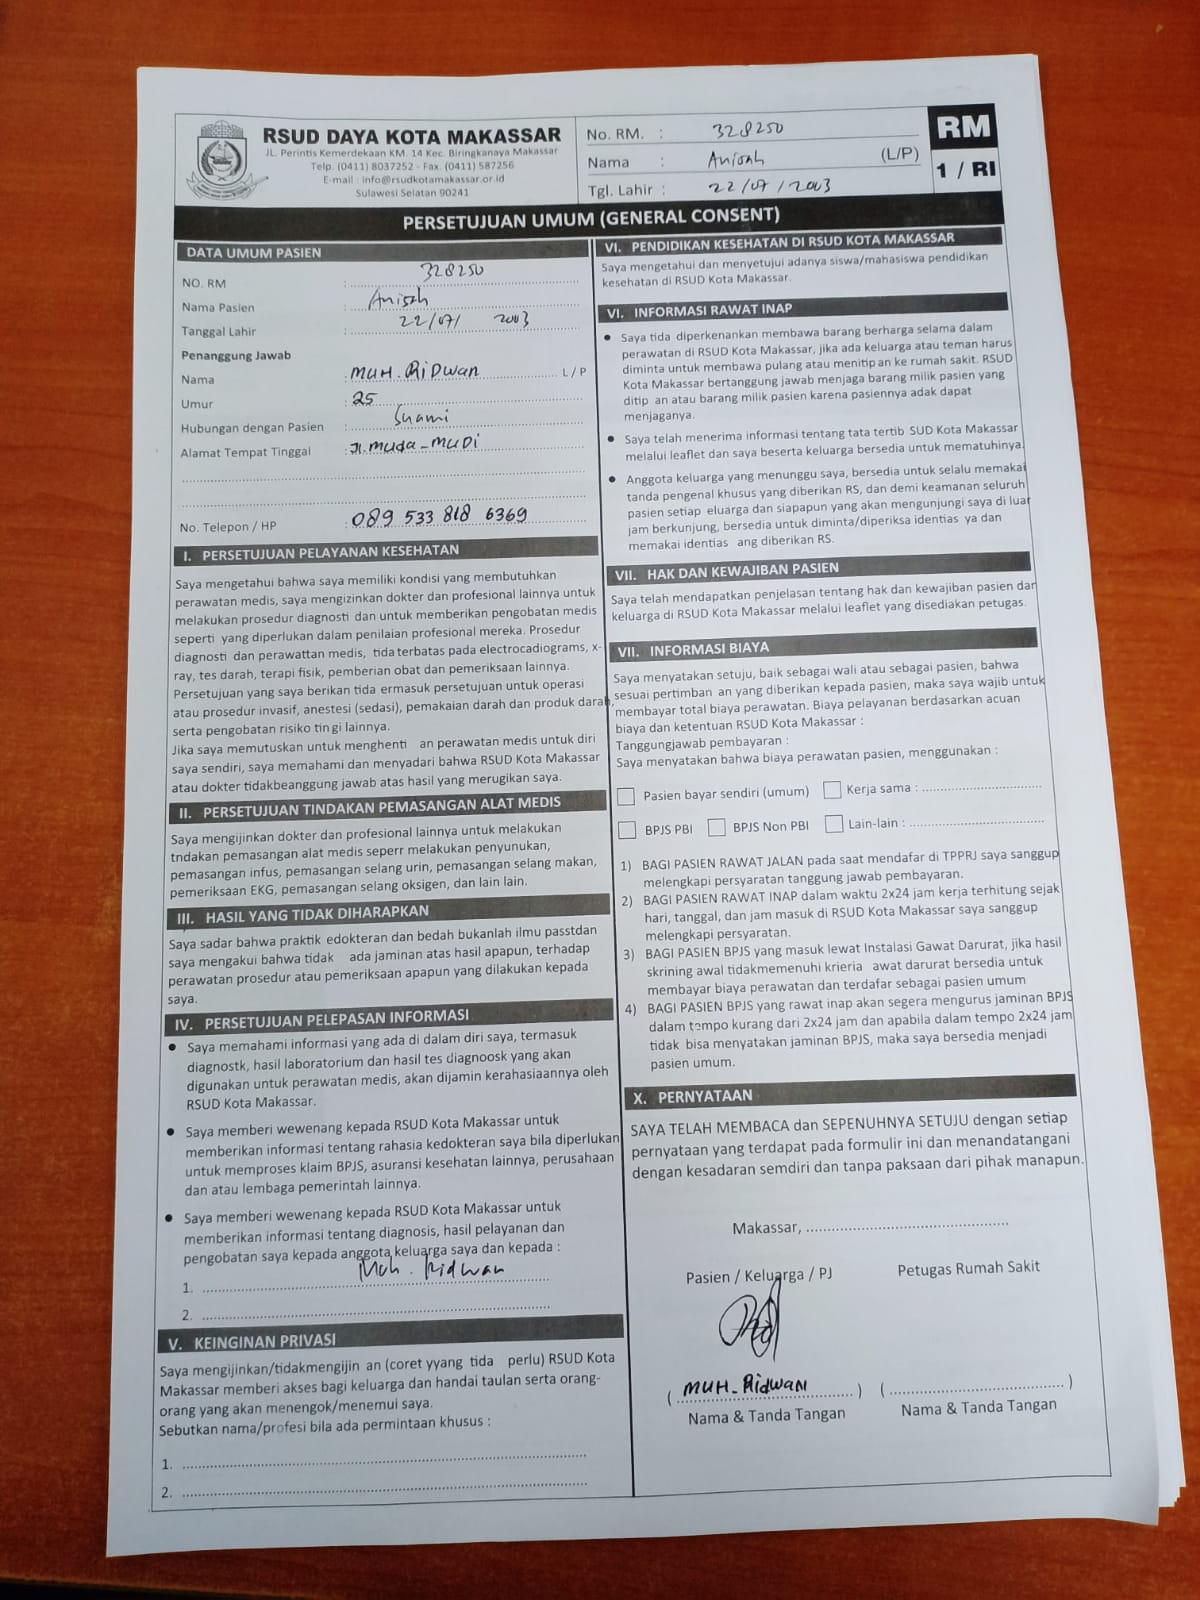 RSUD DAYA KOTA MAKASSAR
JL. Perintis Kemerdekaan KM. 14 Kec. Biringkanaya Makassar
Telp. (0411) 8037252 - Fax. (0411) 587256
E-mail : info@rsudkotamakassar.or.id
Sulawesi Selatan 90241
No. RM. : 328250
Nama : Anisah (L/P)
Tgl. Lahir : 22/07/2003
RM
1 / RI
PERSETUJUAN UMUM (GENERAL CONSENT)
DATA UMUM PASIEN
NO. RM : 328250
Nama Pasien : Anisah
Tanggal Lahir : 22/07/ 2003
Penanggung Jawab
Nama : MUH. RIDWAN L / P
Umur : 25
Hubungan dengan Pasien : Suami
Alamat Tempat Tinggal : Jl. Muda-MUDi
No. Telepon / HP : 089 533 818 6369
I. PERSETUJUAN PELAYANAN KESEHATAN
Saya mengetahui bahwa saya memiliki kondisi yang membutuhkan
perawatan medis, saya mengizinkan dokter dan profesional lainnya untuk
melakukan prosedur diagnosti dan untuk memberikan pengobatan medis
seperti yang diperlukan dalam penilaian profesional mereka. Prosedur
diagnosti dan perawattan medis, tida terbatas pada electrocadiograms, x-
ray, tes darah, terapi fisik, pemberian obat dan pemeriksaan lainnya.
Persetujuan yang saya berikan tida ermasuk persetujuan untuk operasi
atau prosedur invasif, anestesi (sedasi), pemakaian darah dan produk darah,
serta pengobatan risiko tin gi lainnya.
Jika saya memutuskan untuk menghenti an perawatan medis untuk diri
saya sendiri, saya memahami dan menyadari bahwa RSUD Kota Makassar
atau dokter tidakbeanggung jawab atas hasil yang merugikan saya.
II. PERSETUJUAN TINDAKAN PEMASANGAN ALAT MEDIS
Saya mengijinkan dokter dan profesional lainnya untuk melakukan
tndakan pemasangan alat medis seperr melakukan penyunukan,
pemasangan infus, pemasangan selang urin, pemasangan selang makan,
pemeriksaan EKG, pemasangan selang oksigen, dan lain lain.
III. HASIL YANG TIDAK DIHARAPKAN
Saya sadar bahwa praktik edokteran dan bedah bukanlah ilmu passtdan
saya mengakui bahwa tidak ada jaminan atas hasil apapun, terhadap
perawatan prosedur atau pemeriksaan apapun yang dilakukan kepada
saya.
IV. PERSETUJUAN PELEPASAN INFORMASI
• Saya memahami informasi yang ada di dalam diri saya, termasuk
diagnostk, hasil laboratorium dan hasil tes diagnoosk yang akan
digunakan untuk perawatan medis, akan dijamin kerahasiaannya oleh
RSUD Kota Makassar.
• Saya memberi wewenang kepada RSUD Kota Makassar untuk
memberikan informasi tentang rahasia kedokteran saya bila diperlukan
untuk memproses klaim BPJS, asuransi kesehatan lainnya, perusahaan
dan atau lembaga pemerintah lainnya.
• Saya memberi wewenang kepada RSUD Kota Makassar untuk
memberikan informasi tentang diagnosis, hasil pelayanan dan
pengobatan saya kepada anggota keluarga saya dan kepada :
1. Muh. Ridwan
2.
V. KEINGINAN PRIVASI
Saya mengijinkan/tidakmengijin an (coret yyang tida perlu) RSUD Kota
Makassar memberi akses bagi keluarga dan handai taulan serta orang-
orang yang akan menengok/menemui saya.
Sebutkan nama/profesi bila ada permintaan khusus :
1.
2.
VI. PENDIDIKAN KESEHATAN DI RSUD KOTA MAKASSAR
Saya mengetahui dan menyetujui adanya siswa/mahasiswa pendidikan
kesehatan di RSUD Kota Makassar.
VI. INFORMASI RAWAT INAP
• Saya tida diperkenankan membawa barang berharga selama dalam
perawatan di RSUD Kota Makassar, jika ada keluarga atau teman harus
diminta untuk membawa pulang atau menitip an ke rumah sakit. RSUD
Kota Makassar bertanggung jawab menjaga barang milik pasien yang
ditip an atau barang milik pasien karena pasiennya adak dapat
menjaganya.
• Saya telah menerima informasi tentang tata tertib SUD Kota Makassar
melalui leaflet dan saya beserta keluarga bersedia untuk mematuhinya.
• Anggota keluarga yang menunggu saya, bersedia untuk selalu memakai
tanda pengenal khusus yang diberikan RS, dan demi keamanan seluruh
pasien setiap eluarga dan siapapun yang akan mengunjungi saya di luar
jam berkunjung, bersedia untuk diminta/diperiksa identias ya dan
memakai identias ang diberikan RS.
VII. HAK DAN KEWAJIBAN PASIEN
Saya telah mendapatkan penjelasan tentang hak dan kewajiban pasien dan
keluarga di RSUD Kota Makassar melalui leaflet yang disediakan petugas.
VII. INFORMASI BIAYA
Saya menyatakan setuju, baik sebagai wali atau sebagai pasien, bahwa
sesuai pertimban an yang diberikan kepada pasien, maka saya wajib untuk
membayar total biaya perawatan. Biaya pelayanan berdasarkan acuan
biaya dan ketentuan RSUD Kota Makassar :
Tanggungjawab pembayaran :
Saya menyatakan bahwa biaya perawatan pasien, menggunakan :
Pasien bayar sendiri (umum) Kerja sama :
BPJS PBI BPJS Non PBI Lain-lain :
1) BAGI PASIEN RAWAT JALAN pada saat mendafar di TPPRJ saya sanggup
melengkapi persyaratan tanggung jawab pembayaran.
2) BAGI PASIEN RAWAT INAP dalam waktu 2x24 jam kerja terhitung sejak
hari, tanggal, dan jam masuk di RSUD Kota Makassar saya sanggup
melengkapi persyaratan.
3) BAGI PASIEN BPJS yang masuk lewat Instalasi Gawat Darurat, jika hasil
skrining awal tidakmemenuhi krieria awat darurat bersedia untuk
membayar biaya perawatan dan terdafar sebagai pasien umum
4) BAGI PASIEN BPJS yang rawat inap akan segera mengurus jaminan BPJS
dalam tempo kurang dari 2x24 jam dan apabila dalam tempo 2x24 jam
tidak bisa menyatakan jaminan BPJS, maka saya bersedia menjadi
pasien umum.
X. PERNYATAAN
SAYA TELAH MEMBACA dan SEPENUHNYA SETUJU dengan setiap
pernyataan yang terdapat pada formulir ini dan menandatangani
dengan kesadaran semdiri dan tanpa paksaan dari pihak manapun.
Makassar,
Pasien / Keluarga / PJ Petugas Rumah Sakit
( MUH. Ridwan ) ( )
Nama & Tanda Tangan Nama & Tanda Tangan